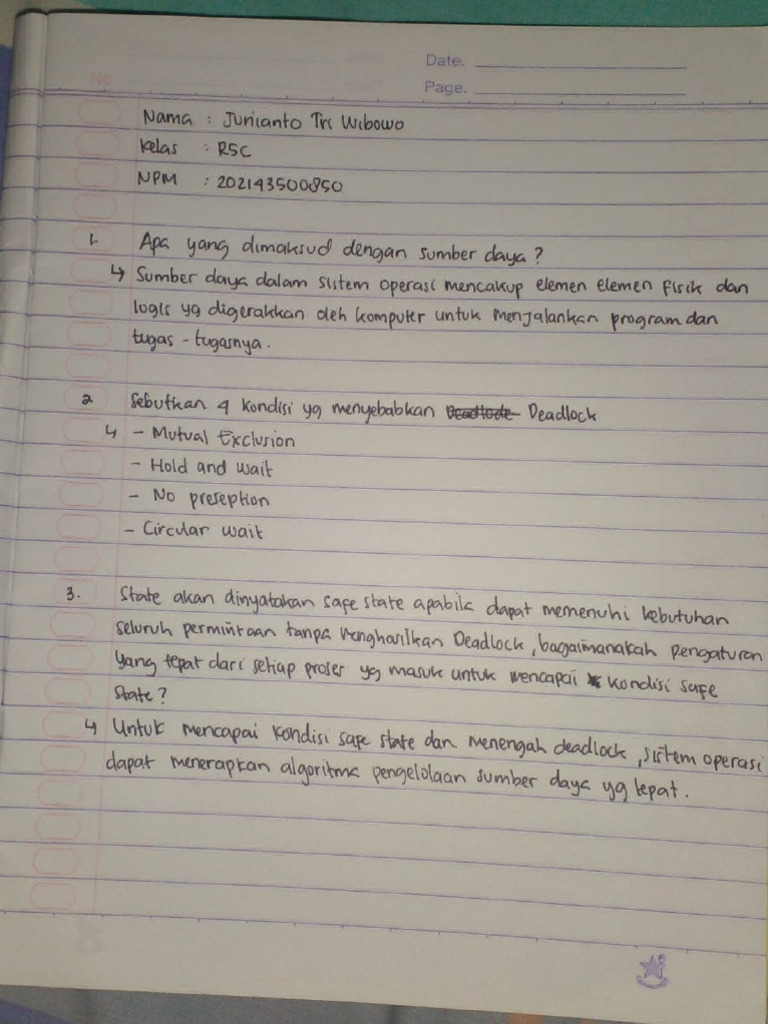 No
Date.
Page.
Nama : Junianto Tri Wibowo
Kelas : R5C
NPM : 202143500850
1. Apa yang dimaksud dengan sumber daya ?
↳ Sumber daya dalam sistem operasi mencakup elemen elemen fisik dan
logis yg digerakkan oleh komputer untuk menjalankan program dan
tugas - tugasnya.
2 Sebutkan 4 kondisi yg menyebabkan Deadlock
↳ - Mutual Exclusion
- Hold and wait
- No preseption
- Circular wait
3. State akan dinyatakan safe state apabila dapat memenuhi kebutuhan
seluruh permintaan tanpa menghasilkan Deadlock, bagaimanakah pengaturan
yang tepat dari setiap proses yg masuk untuk mencapai kondisi safe
state ?
↳ Untuk mencapai kondisi safe state dan menengah deadlock, sistem operasi
dapat menerapkan algoritma pengelolaan sumber daya yg tepat.